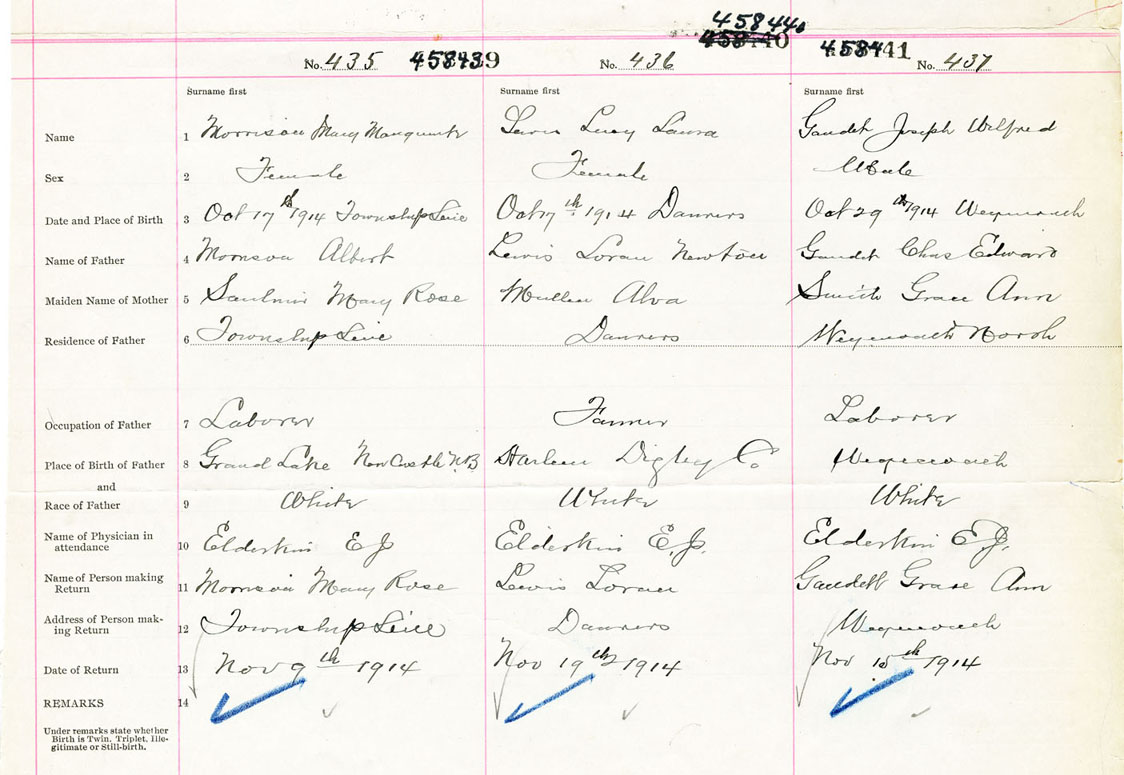 458440
No. 435 458439 No. 436 458441 No. 437
Surname first Surname first Surname first
Name 1 Morrison Mary Marguerite Lewis Lucy Laura Gaudet Joseph Wilfred
Sex 2 Female Female Male
Date and Place of Birth 3 Oct 17th 1914 Township Line Oct 17th 1914 Danvers Oct 29th 1914 Weymouth
Name of Father 4 Morrison Albert Lewis Loran Newton Gaudet Chas Edward
Maiden Name of Mother 5 Saulnier Mary Rose Mullen Alva Smith Grace Ann
Residence of Father 6 Township Line Danvers Weymouth North
Occupation of Father 7 Laborer Farmer Laborer
Place of Birth of Father 8 Grand Lake New Castle N.B Digby Co Weymouth
and
Race of Father 9 White White White
Name of Physician in
attendance 10 Elderkin E J Elderkin E.J. Elderkin E.J.
Name of Person making
Return 11 Morrison Mary Rose Lewis Loran Gaudett Grace Ann
Address of Person mak-
ing Return 12 Township Line Danvers Weymouth
Date of Return 13 Nov 9th 1914 Nov 19th 1914 Nov 1914
REMARKS 14
Under remarks state whether
Birth is Twin. Triplet, Ille-
gitimate or Still-birth.